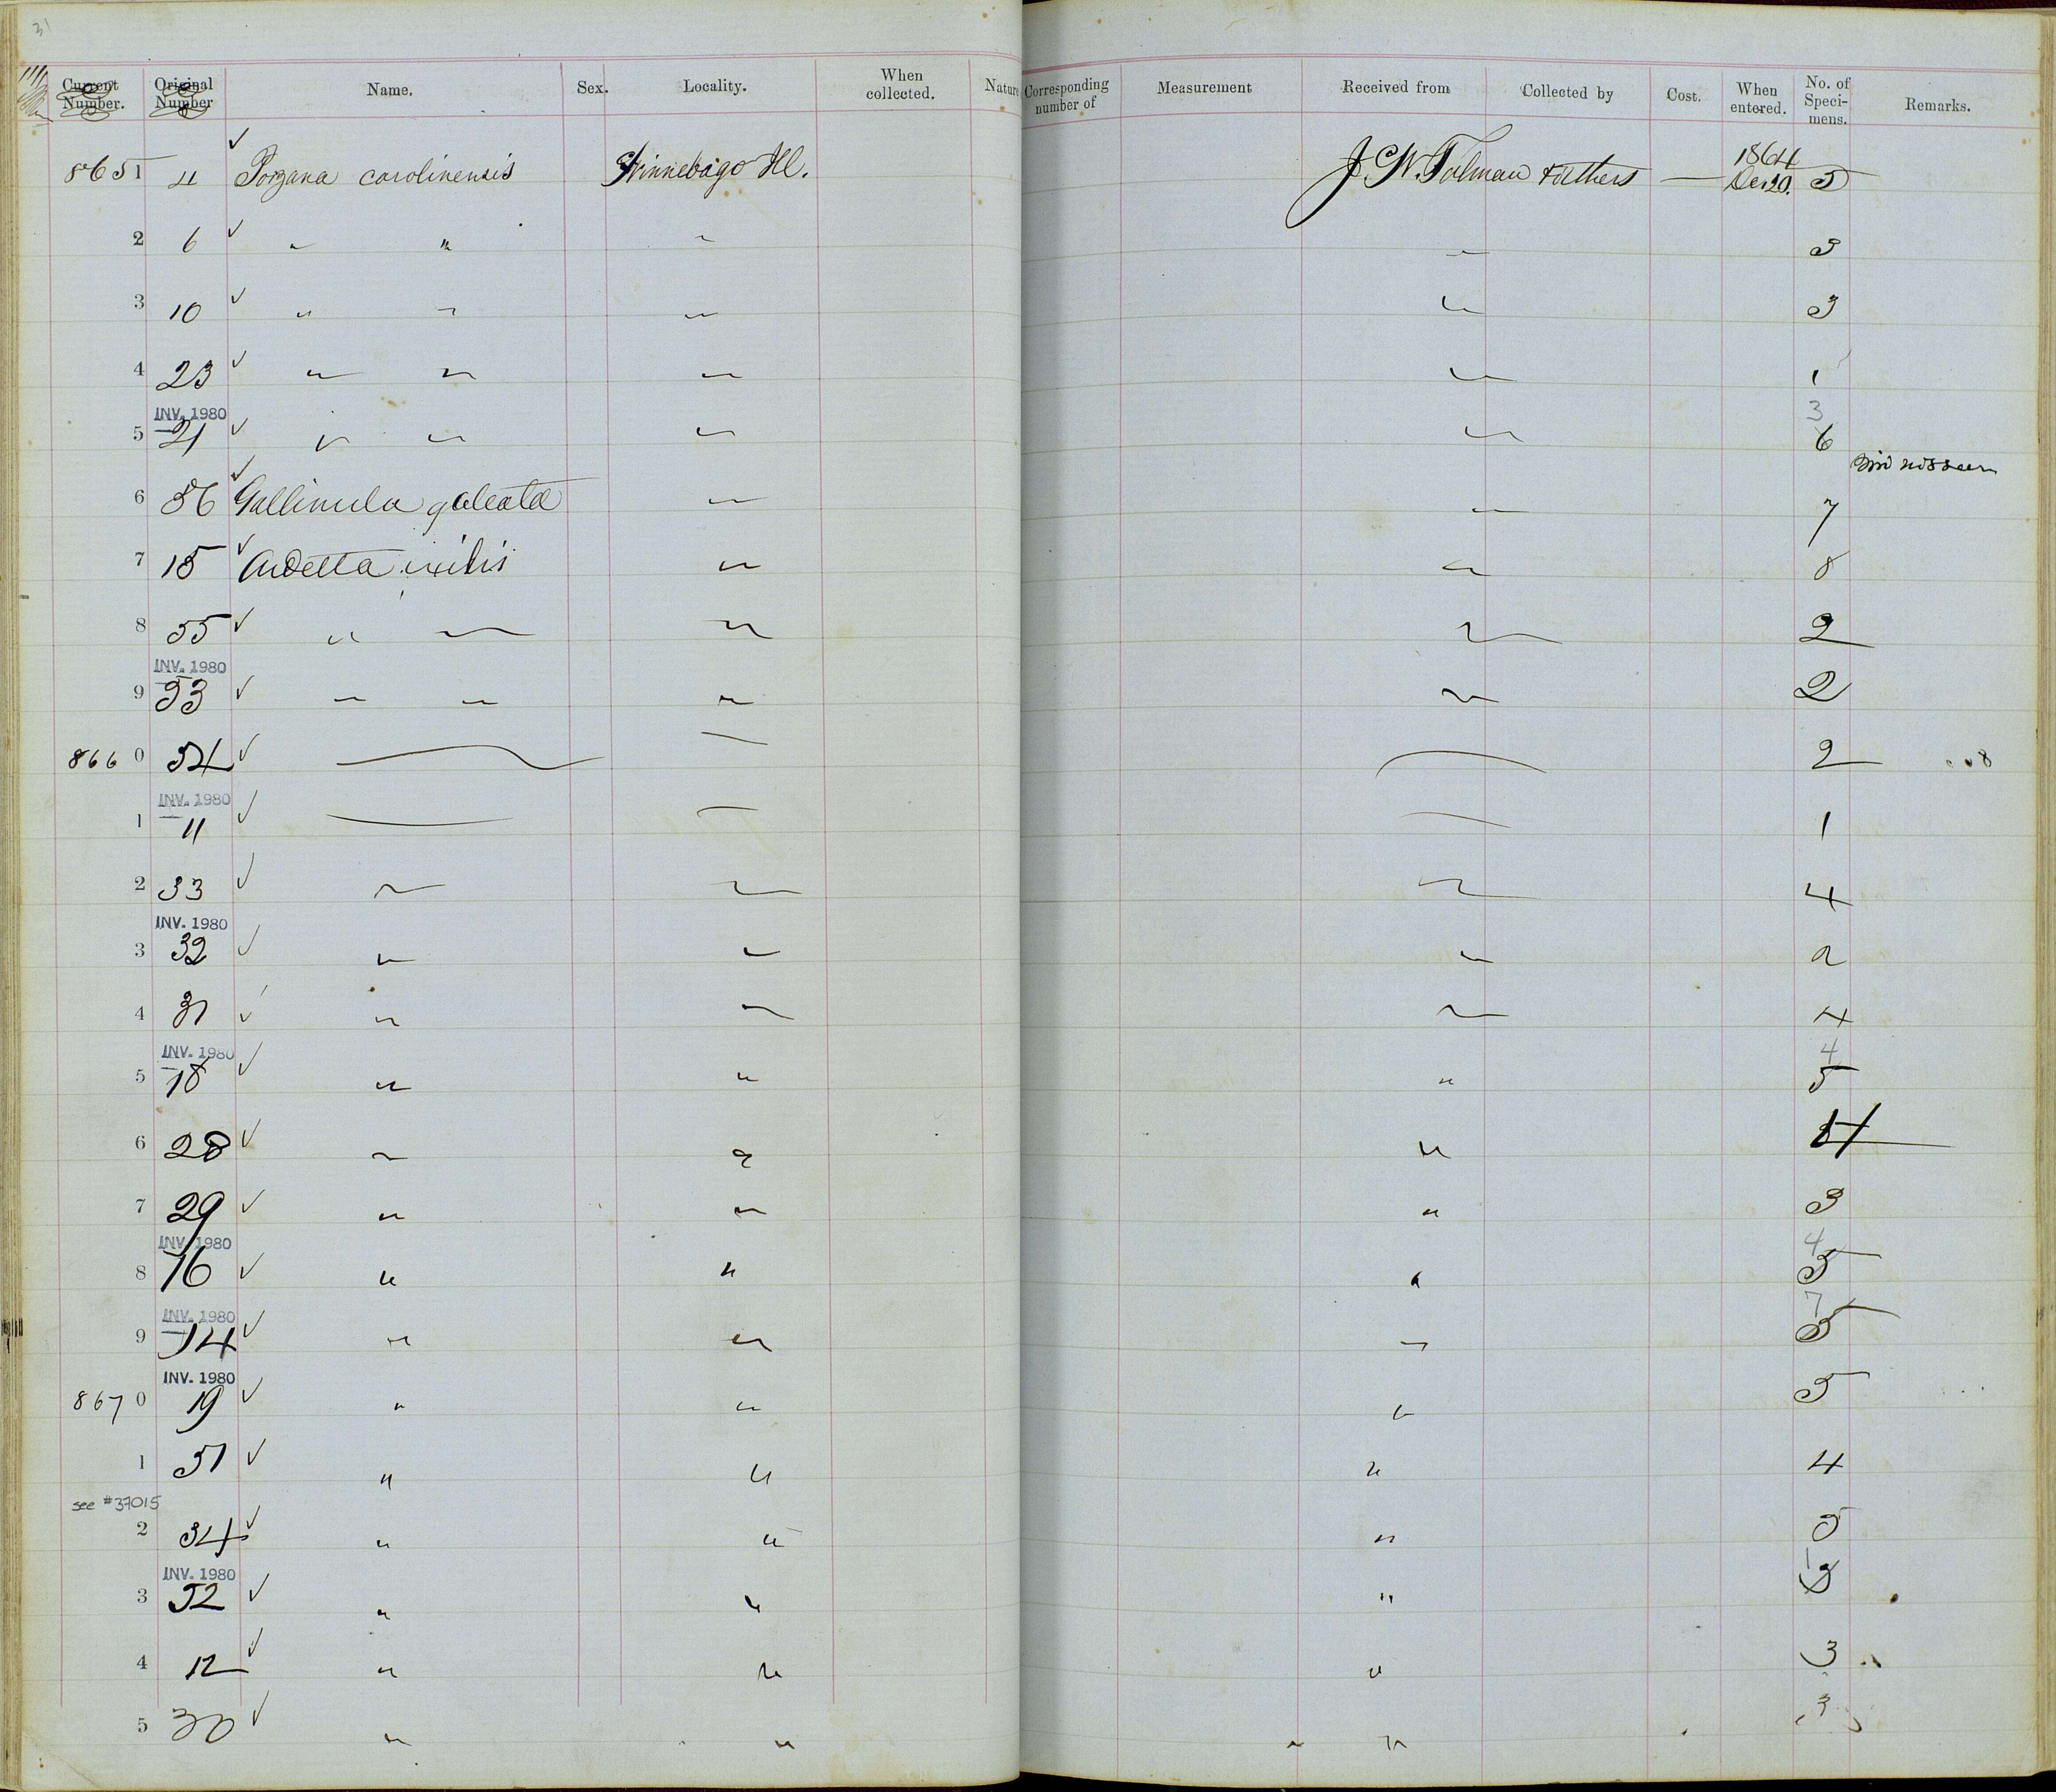 31
Current Number. Original Number Name. Sex. Locality. When collected. Nature Corresponding number of Measurement Received from Collected by Cost. When entered. No. of Speci-mens. Remarks.
8651 4 ✓ Porzana carolinensis Winnebago Ill. J. W. Tolman & others — 1864 Dec 20. 5
2 6 ✓ " " " " 3
3 10 ✓ " " " " 3
4 23 ✓ " " " " 1
INV. 1980 3
5 21 ✓ " " " " 6
6 86 ✓ Gallinula galeata " " 7
7 15 ✓ Ardetta exilis " " 8
8 55 ✓ " " " " 2
INV. 1980
9 53 ✓ " " " " 2
8660 54 ✓ " " " 2
INV. 1980
1 11 ✓ " " " 1
2 33 ✓ " " " 4
INV. 1980
3 32 ✓ " " " 2
4 31 ✓ " " " 4
INV. 1980 4
5 18 ✓ " " " 5
6 28 ✓ " " " 4
7 29 ✓ " " " 3
INV. 1980 4
8 16 ✓ " " " 5
INV. 1980 7
9 14 ✓ " " " 5
INV. 1980
8670 19 ✓ " " " 5
1 51 ✓ " " " 4
see #37015
2 34 ✓ " " " 5
INV. 1980 1
3 52 ✓ " " "
4 12 ✓ " " " 3
5 30 ✓ " " " 3